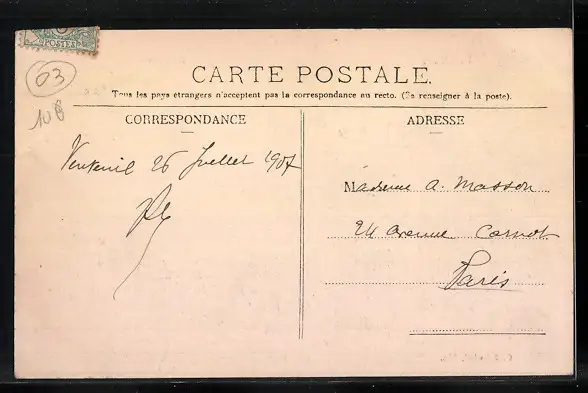 POSTES
03
108
CARTE POSTALE.
Tous les pays étrangers n'acceptent pas la correspondance au recto. (Se renseigner à la poste).
CORRESPONDANCE
ADRESSE
26 Juillet 1907
Madame A. Masson
24 Avenue Carnot
Paris